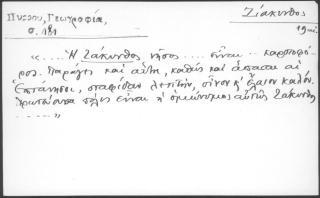 Πύρρου, Γεωγραφία,
σ. 181
Ζάκυνθος
19 αι.
"....Ἡ Ζάκυνθος νῆσος .... εἶναι - καρποφό-
ρος. Παράγει καὶ αὕτη, καθὼς καὶ ἅπασαι αἱ
Ἑπτάνησοι, σταφίδαν λεπτήν, οἶνον κ' ἔλαιον καλόν.
Πρωτεύουσα πόλις εἶναι ἡ ὁμώνυμος αὐτῆς Ζάκυνθος
....."